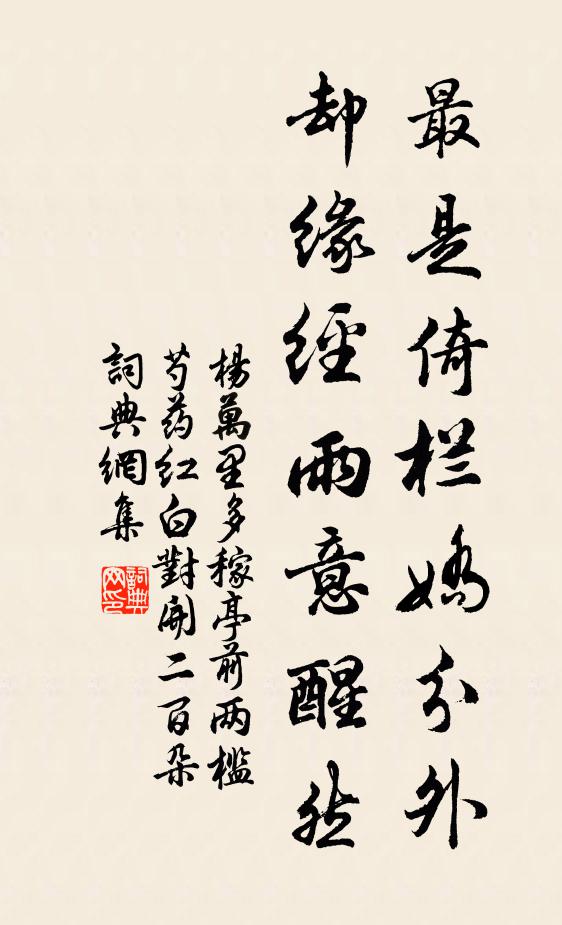 最是倚栏嬌分外
却緣經雨意醒然
楊萬里多稼亭前两檻
芍药红白對開二百朵
詞典網集
詞典网印